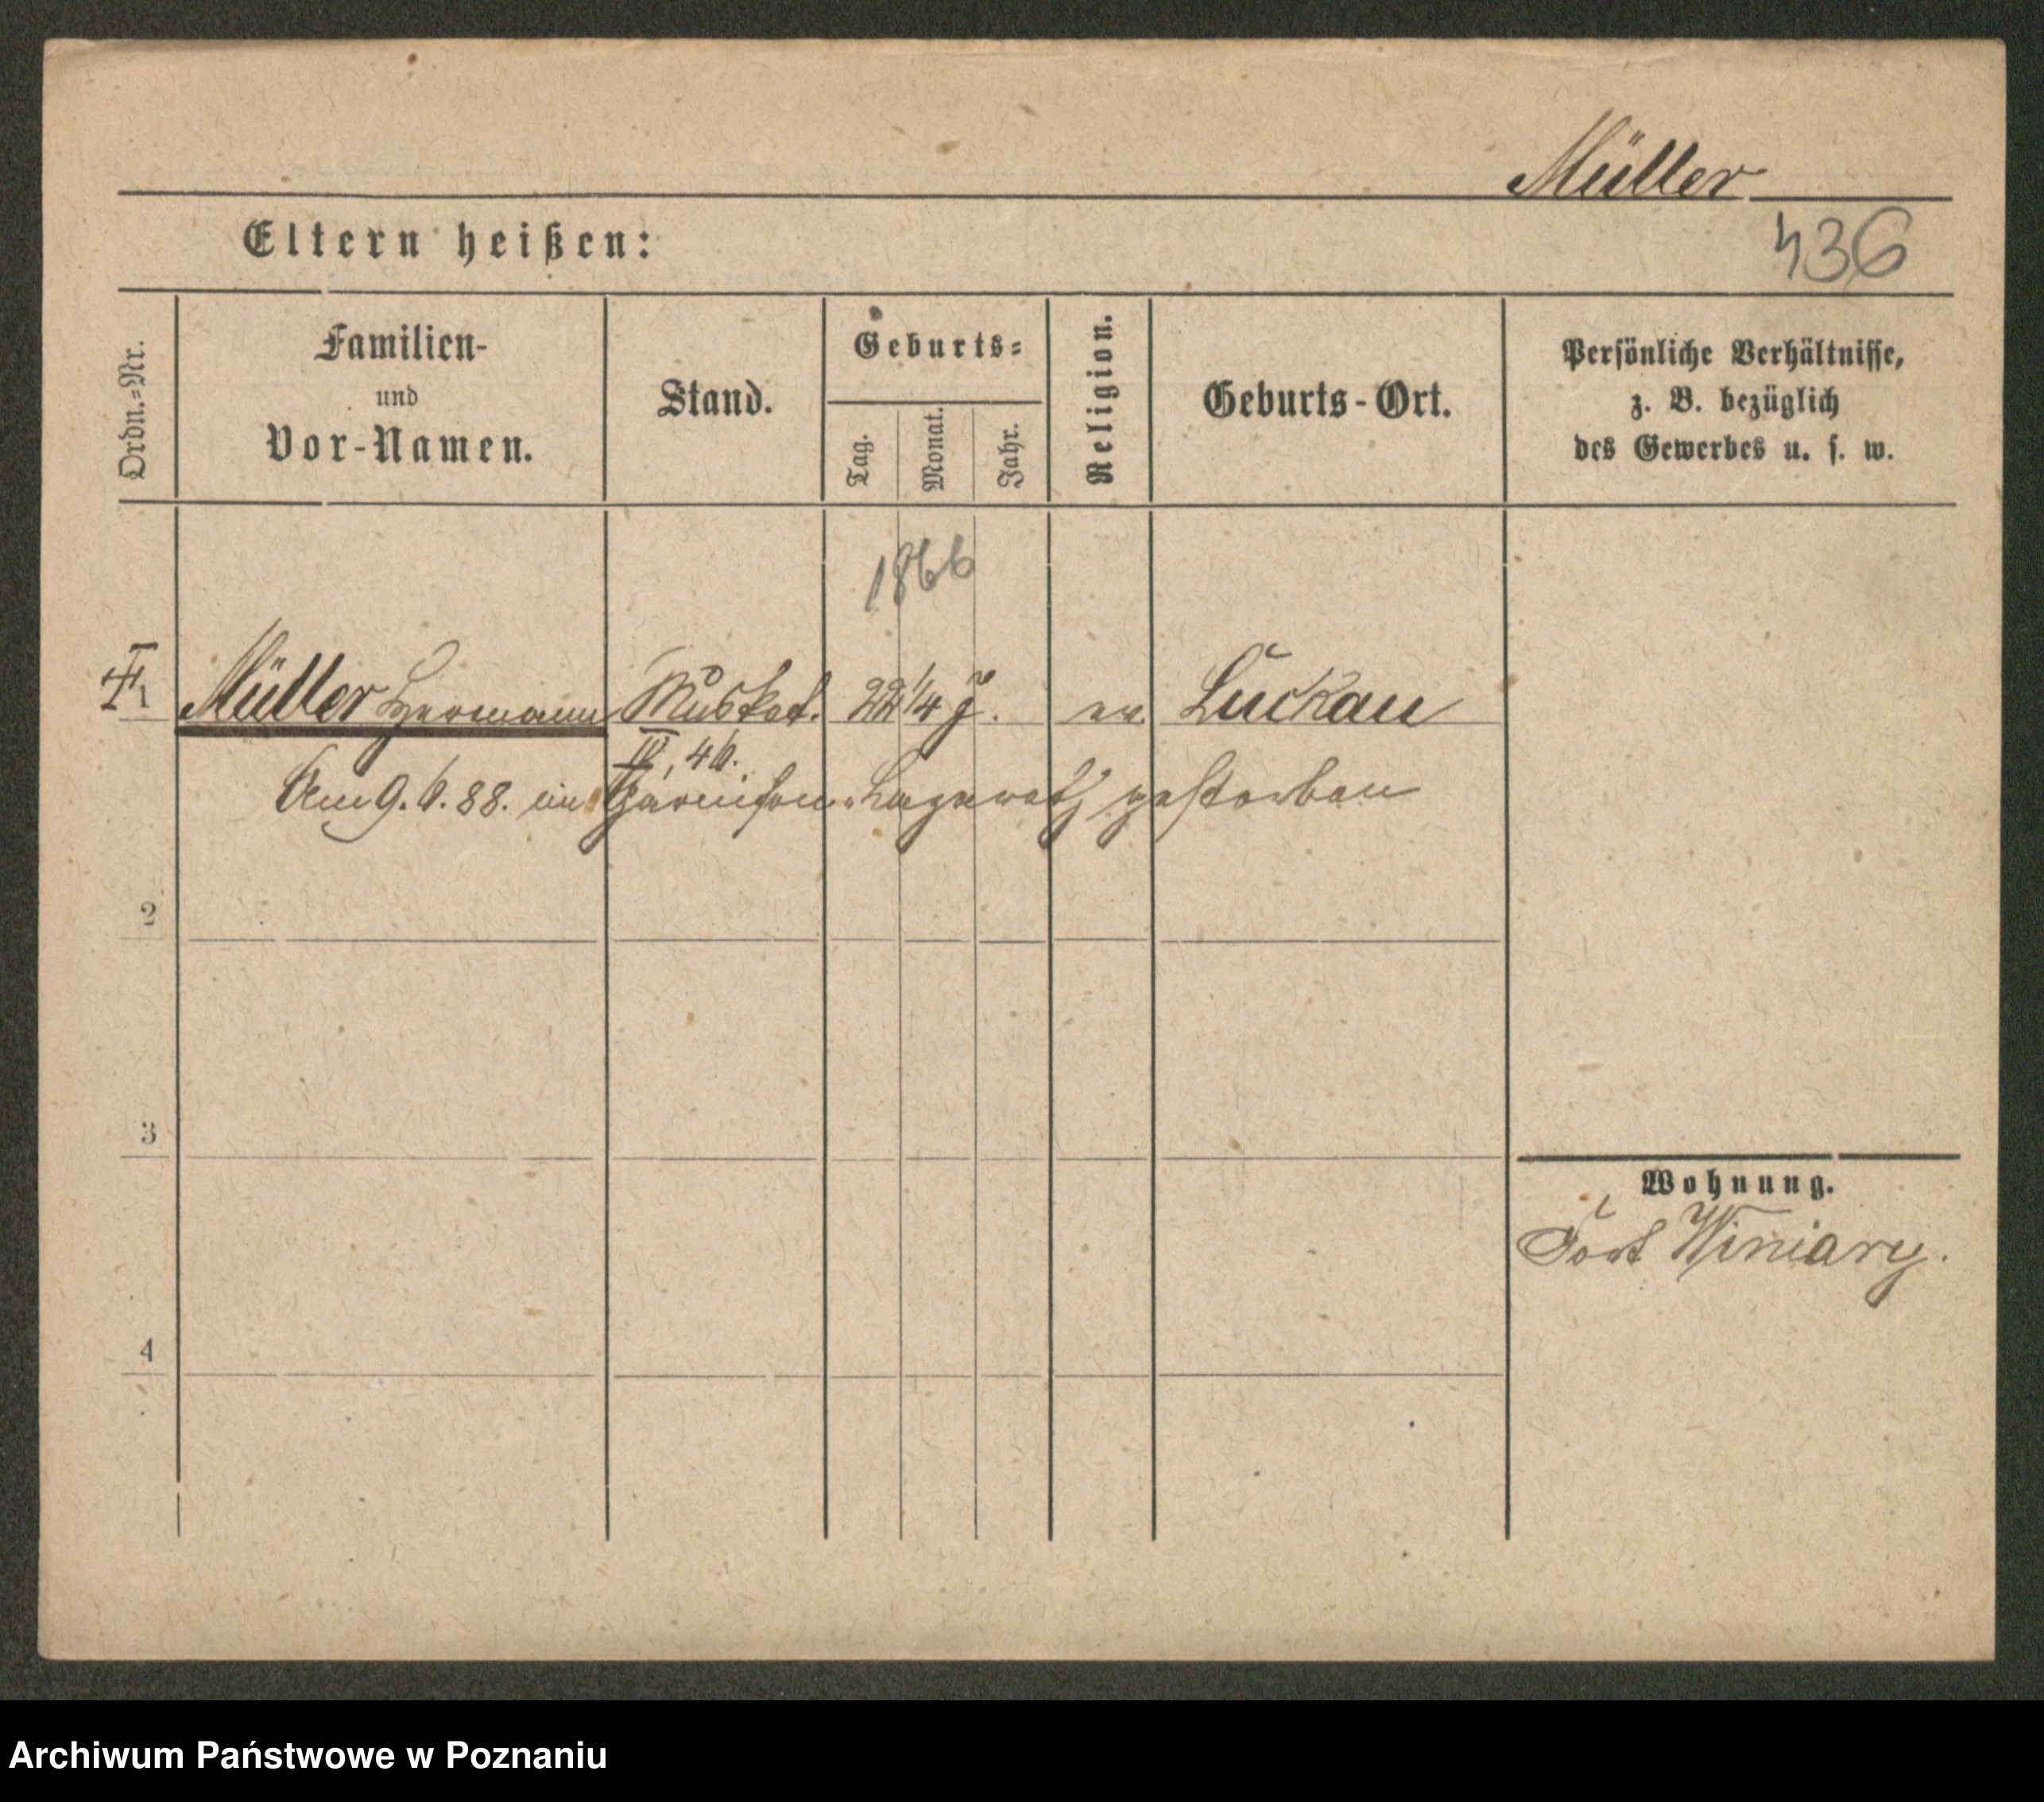 Müller
Eltern heißen:
436
Ordn.-Nr.
Familien-
und
Vor-Namen.
Stand.
Geburts-
Tag.
Monat.
Jahr.
Religion.
Geburts-Ort.
Persönliche Verhältnisse,
z. B. bezüglich
des Gewerbes u. s. w.
1866
1 Müller Hermann Musket. 22 1/4 J. ev. Luckau
IV, 46.
Am 9. 6. 88. im Garnison-Lazareth gestorben
2
3
Wohnung.
Fort Winiary.
4
Archiwum Państwowe w Poznaniu